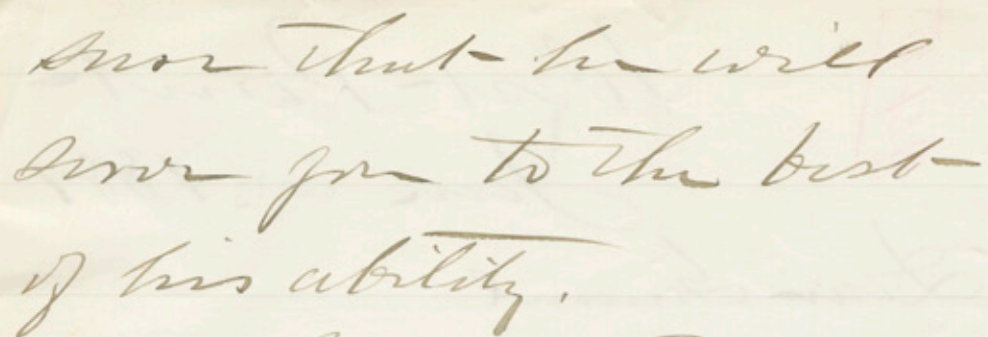 sure that he will
serve you to the best
of his ability.